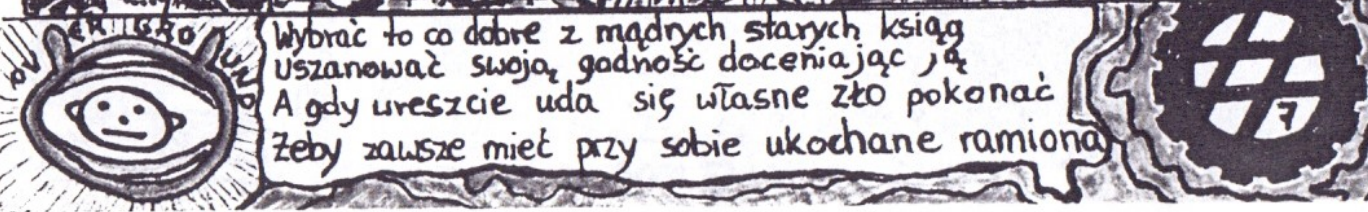 OVERGROUND
Wybrać to co dobre z mądrych starych ksiąg
Uszanować swoją godność doceniając ją
A gdy wreszcie uda się własne zło pokonać
Żeby zawsze mieć przy sobie ukochane ramiona
7